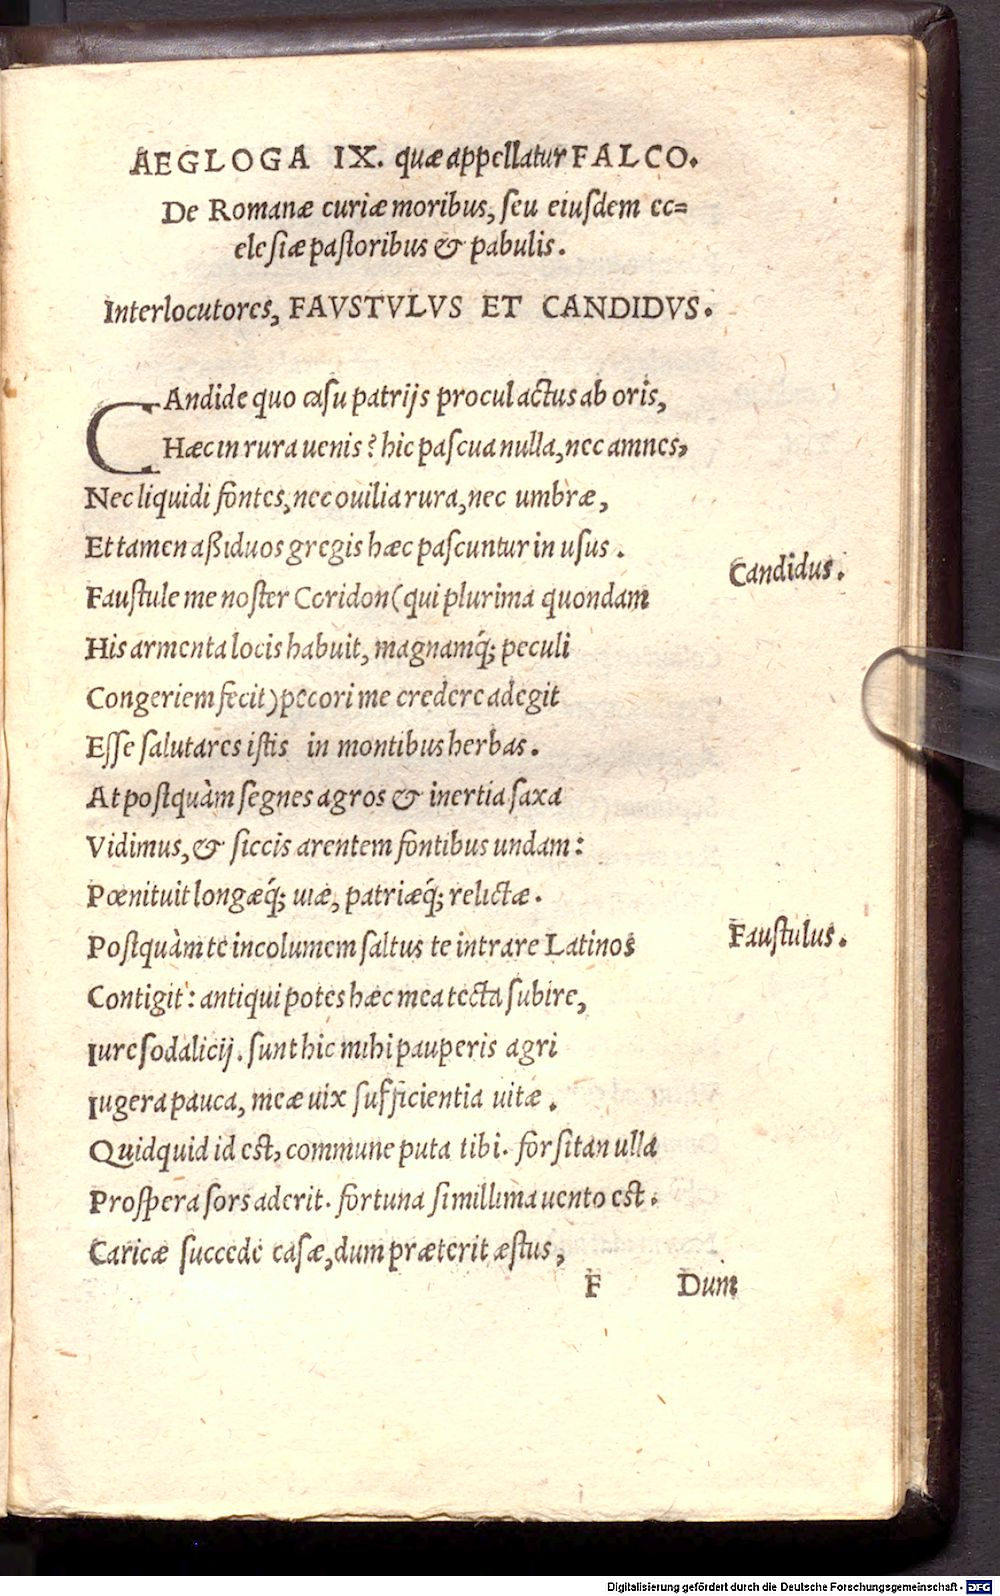 AEGLOGA IX. quæ appellatur FALCO.
De Romanæ curiæ moribus, ſeu eiuſdem ec=
cleſiæ paſtoribus & pabulis.
Interlocutores, FAVSTVLVS ET CANDIDVS.
CAndide quo caſu patrijs procul actus ab oris,
Hæc in rura uenis? hic paſcua nulla, nec amnes,
Nec liquidi fontes, nec ouilia rura, nec umbræ,
Et tamen aßiduos gregis hæc paſcuntur in uſus.
Candidus.
Fauſtule me noſter Coridon (qui plurima quondam
His armenta locis habuit, magnamq́; peculi
Congeriem fecit) pecori me credere adegit
Eſſe salutares iſtis in montibus herbas.
At poſtquàm ſegnes agros & inertia ſaxa
Vidimus, & ſiccis arentem fontibus undam:
Pœnituit longæq́; uiæ, patriæq́; relictæ.
Faustulus.
Poſtquàm te incolumem ſaltus te intrare Latinos
Contigit: antiqui potes hæc mea tecta ſubire,
Iure ſodalicij. ſunt hic mihi pauperis agri
Iugera pauca, meæ uix ſufficientia uitæ.
Quidquid id est, commune puta tibi. forſitan ulla
Proſpera ſors aderit. fortuna ſimillima uento est.
Caricæ ſuccede caſæ, dum præterit æſtus,
F Dum
Digitalisierung gefördert durch die Deutsche Forschungsgemeinschaft - DFG